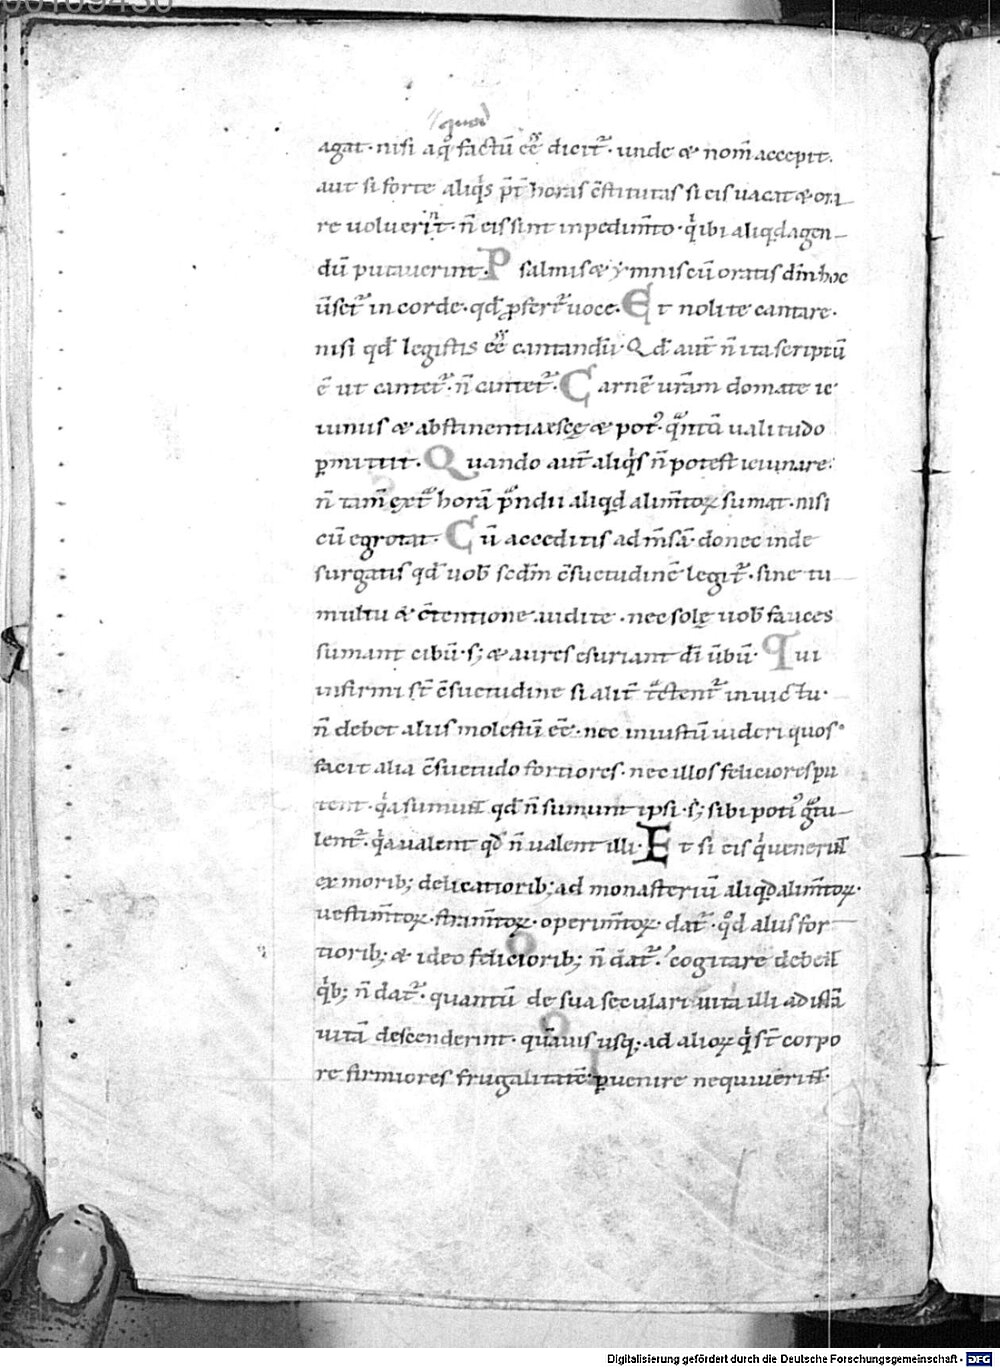 quod
agat · nisi aqđ factū eē dicit̄ · unde & nom̄ accepit.
aut si forte aliq̇s p̄t̄ horas c̄stitutas si eis uacat & ora
re uoluerīt · n̄ eis sint inpedim̄to · q̇ ibi aliqd agen-
dū putauerint. Psalmis & ymnis cū oratis dm̄ hoc
ūset̄ in corde · qđ ꝓfert̄ uoce. Et nolite cantare ·
nisi qđ legistis eē cantandū · Qđ aut̄ n̄ ita scriptū
ē ut cantet̄ · n̄ cantet̄. Carnē uram̄ domate ie
iuniis & abstinentia escę & pot᷒ · qᵃntū ualitudo
ꝑmittit. Quando aut̄ aliq̇s n̄ potest ieiunare ·
n̄ tam̄ ext̄ᵃ horā pᵃndii aliqd alim̄toꝝ sumat · nisi
cū egrotat. Cū acceditis ad m̄sā · donec inde
surgatis qđ uob̄ scdm̄ c̄suetudinē legit̄ · sine tu
multu & c̄tentione audite · nec solę uob̄ fauces
sumant cibū · s; & aures esuriant dī ūbū. Qui
infirmi st̄ c̄suetudine si alit̄ tᵃctent̄ in uictu ·
n̄ debet aliis molestū eē · nec iniustū uideri quos
facit alia c̄suetudo fortiores · nec illos feliciores pu
tent · q̇a sumunt qđ n̄ sumunt ipsi · s; sibi poti᷒ gᵃtu-
lent̄ · q̇a ualent qđ n̄ ualent illi. Et si eis q̇ uenerunt
ex morib; delicatiorib; ad monasteriū aliqd alim̄toꝝ ·
uestim̄toꝝ · stram̄toꝝ · operim̄toꝝ · dat̄ · qđ aliis for
tiorib; & ideo feliciorib; n̄ dat̄ · cogitare debent
q̇b; n̄ dat̄ · quantū de sua seculari uita illi ad istā
uitā descenderint · quāuis usq; ad alioꝝ q̇ st̄ corpo
re firmiores frugalitatē ꝑuenire nequiuerint.
Digitalisierung gefördert durch die Deutsche Forschungsgemeinschaft - DFG